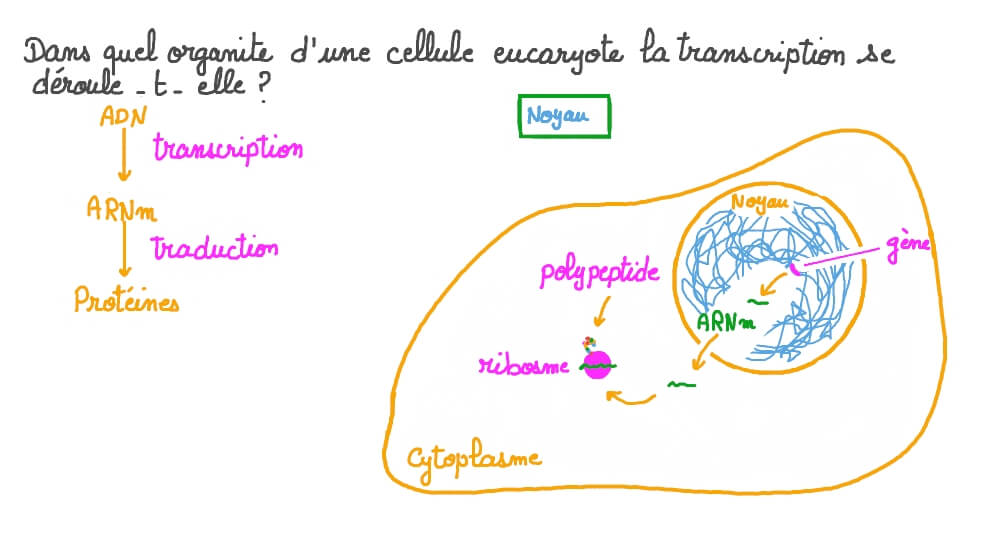 Dans quel organite d'une cellule eucaryote la transcription se
déroule - t - elle ?
ADN
transcription
ARNm
traduction
Protéines
Noyau
Noyau
gène
polypeptide
ARNm
ribosme
Cytoplasme